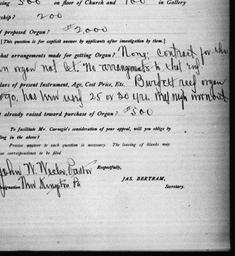 on floor of Church and 100 in Gallery
200
of proposed Organ? $2000
[This question is for explicit answer by applicants after investigation by them.]
What arrangements made for getting Organ? None. Contract for the
organ not let. No arrangements to that end
of present Instrument, Age, Cost Price, Etc. Burdett reed organ
25 or 30 yrs.
already raised toward purchase of Organ? $500
To facilitate Mr. Carnegie's consideration of your appeal, will you oblige by
in the above?
Precise answer to each question is necessary. The leaving of blanks may
correspondence to be filed.
Respectfully,
John W. Pastor
JAS. BERTRAM,
New Kensington Pa
Secretary.